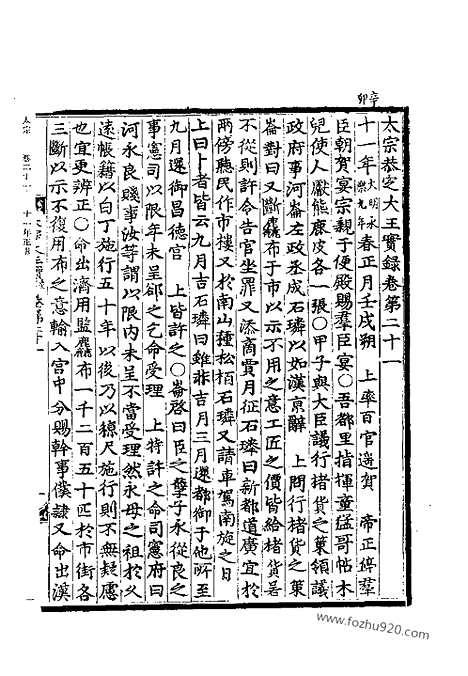 辛卯
太宗恭定大王實錄卷第二十一
十一年大明永樂九年春正月壬戌朔 上率百官遙賀 帝正停羣
臣朝賀宴宗親于便殿賜羣臣宴○吾都里指揮童猛哥帖木
兒使人獻熊鹿皮各一張○甲子與大臣議行楮貨之策領議
政府事河崙左政丞成石璘以如漢京辭 上問行楮貨之策
崙對曰又斷麤布子市以示不用之意工匠之價皆給楮貨若
不從則許令告官坐罪又添商賈月征石璘曰新都道廣宜於
兩傍聽民作市樓又於南山種松栢石璘又請車駕南旋之日
上曰卜者皆云九月吉石璘曰雖非吉月三月還都御于他所至
九月還御昌德宮 上皆許之○崙啓曰臣之孽子永從良之
事憲司以限年未呈却之乞命受理 上特許之命司憲府曰
河永良賤事汝等謂以限內未呈不當受理然永母之祖於父
遠帳籍以白丁施行五十年以後乃以稷尺施行則不無疑慮
也宜更辨正○命出濟用監麤布一千二百五十匹於市街各
三斷以示不復用布之意輸入宮中分賜幹事僕隸又命出漢
太宗 卷二十一 十一年正月
www.fozhu920.com